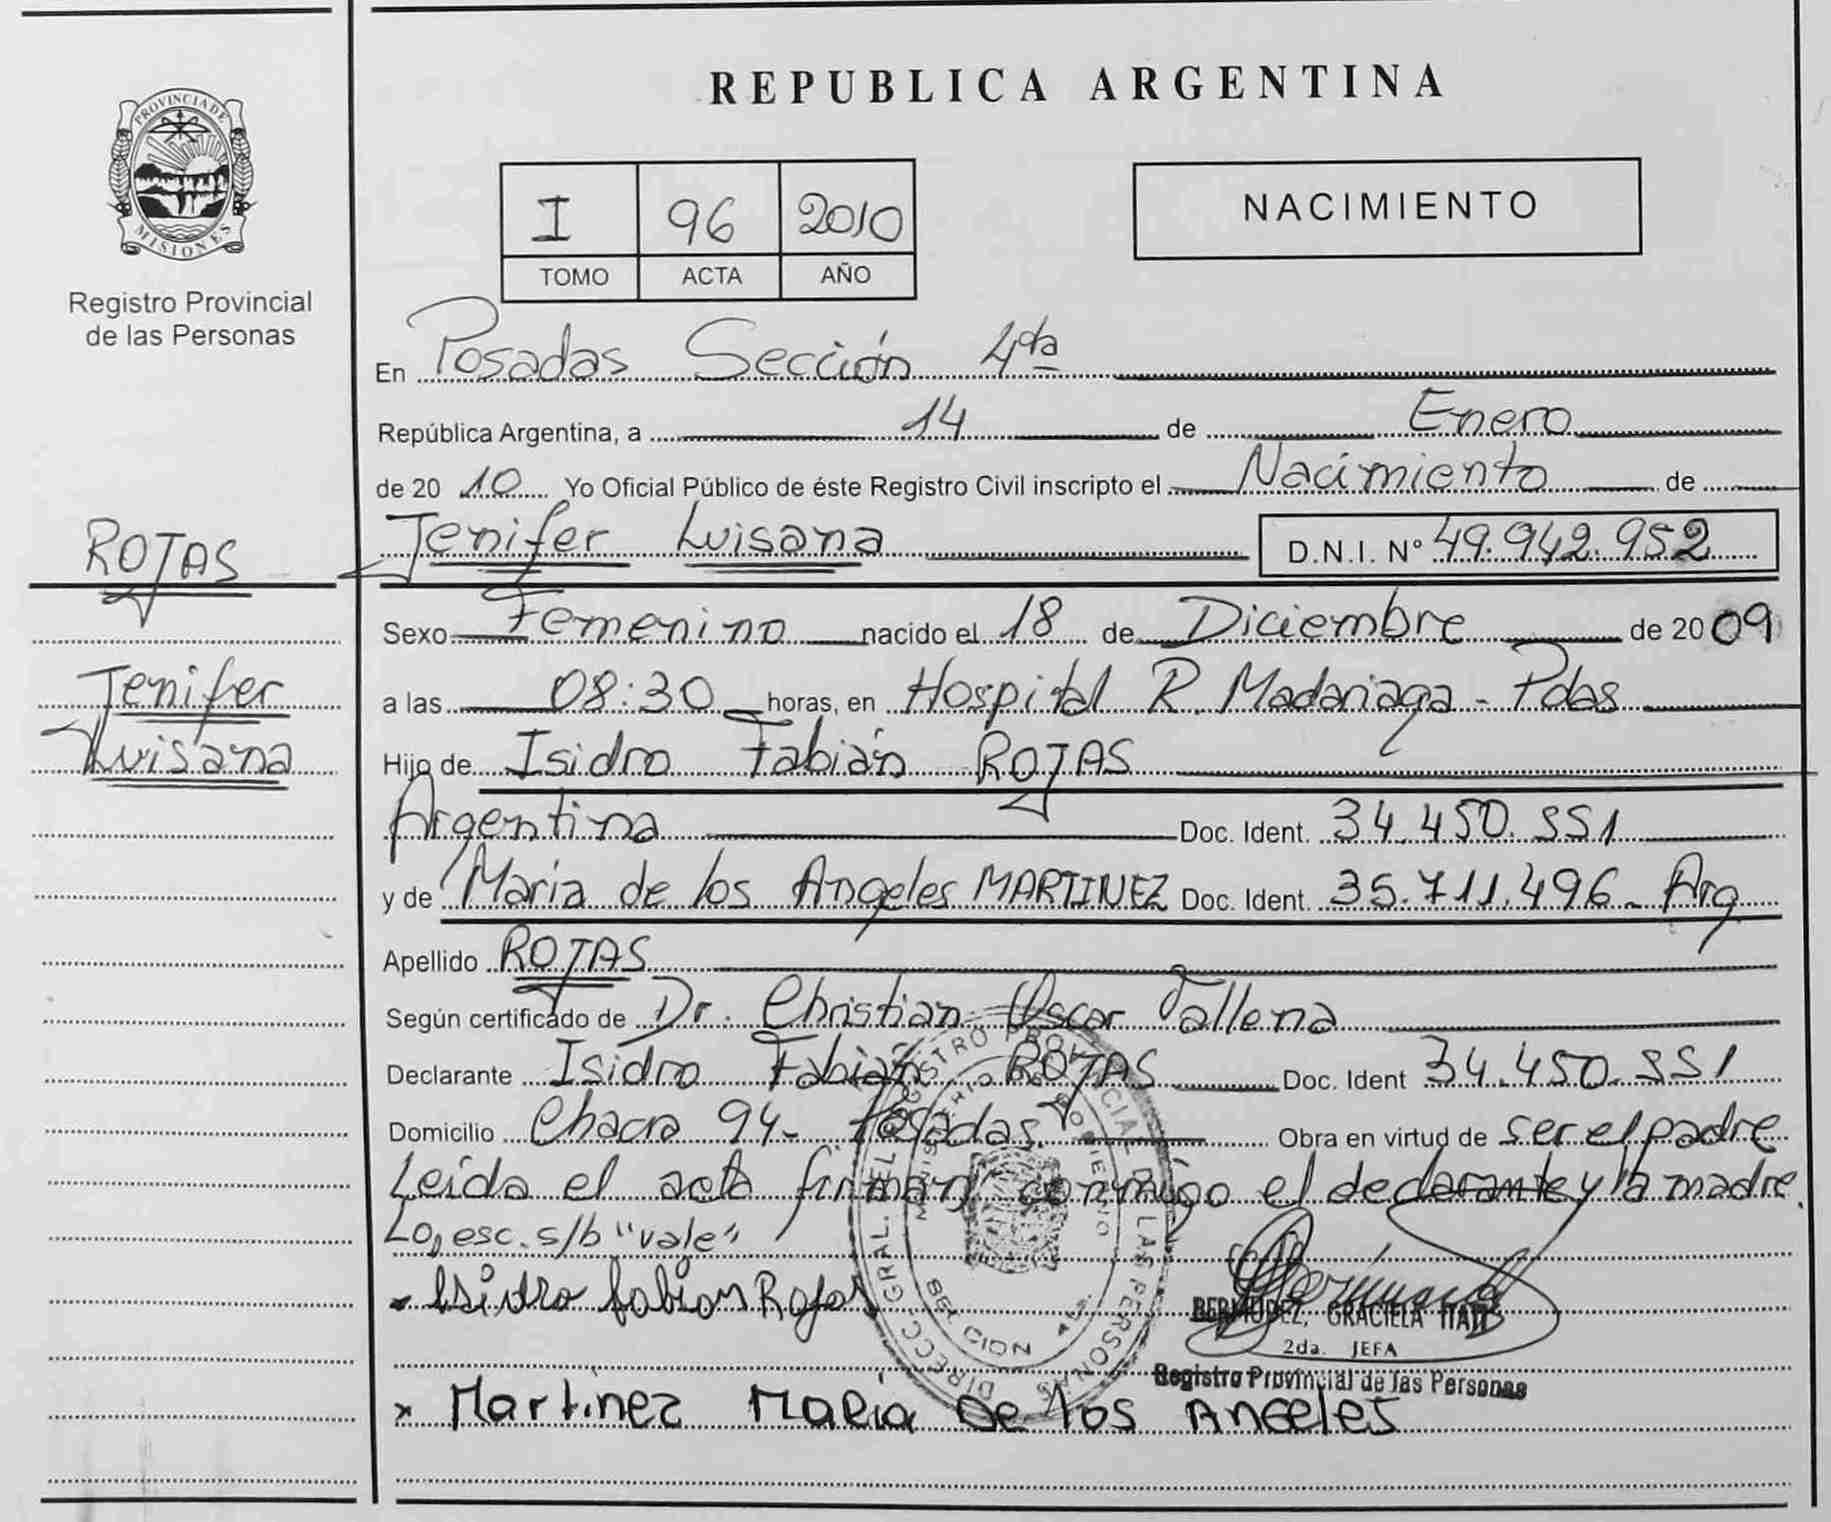 REPUBLICA ARGENTINA
PROVINCIA DE
MISIONES
Registro Provincial
de las Personas
I 96 2010
TOMO ACTA AÑO
NACIMIENTO
En Posadas Sección 4ta
República Argentina, a 14 de Enero
de 20 10 Yo Oficial Público de éste Registro Civil inscripto el Nacimiento de
ROJAS
Jenifer Luisana D.N.I. Nº 49.942.952
Sexo Femenino nacido el 18 de Diciembre de 20 09
Jenifer
a las 08:30 horas, en Hospital R. Madariaga - Pdas
Luisana
Hijo de Isidro Fabián ROJAS
Argentina Doc. Ident. 34.450.551
y de Maria de los Angeles MARTINEZ Doc. Ident. 35.711.496 - Arg
Apellido ROJAS
Según certificado de Dr. Christian Oscar
Declarante Isidro Fabián ROJAS Doc. Ident 34.450.551
Domicilio Chacra 94 - Posadas. Obra en virtud de ser el padre
Leida el acta firman conmigo el declarante y la madre.
Lo, esc. s/b "vale"
x Isidro fabian Rojas
BERMUDEZ, GRACIELA ITATI
2da. JEFA
Registro Provincial de las Personas
x Martinez Maria De los Angeles
DIRECC. GRAL. DEL REGISTRO PROVINCIAL DE LAS PERSONAS
MINISTERIO DE GOBIERNO